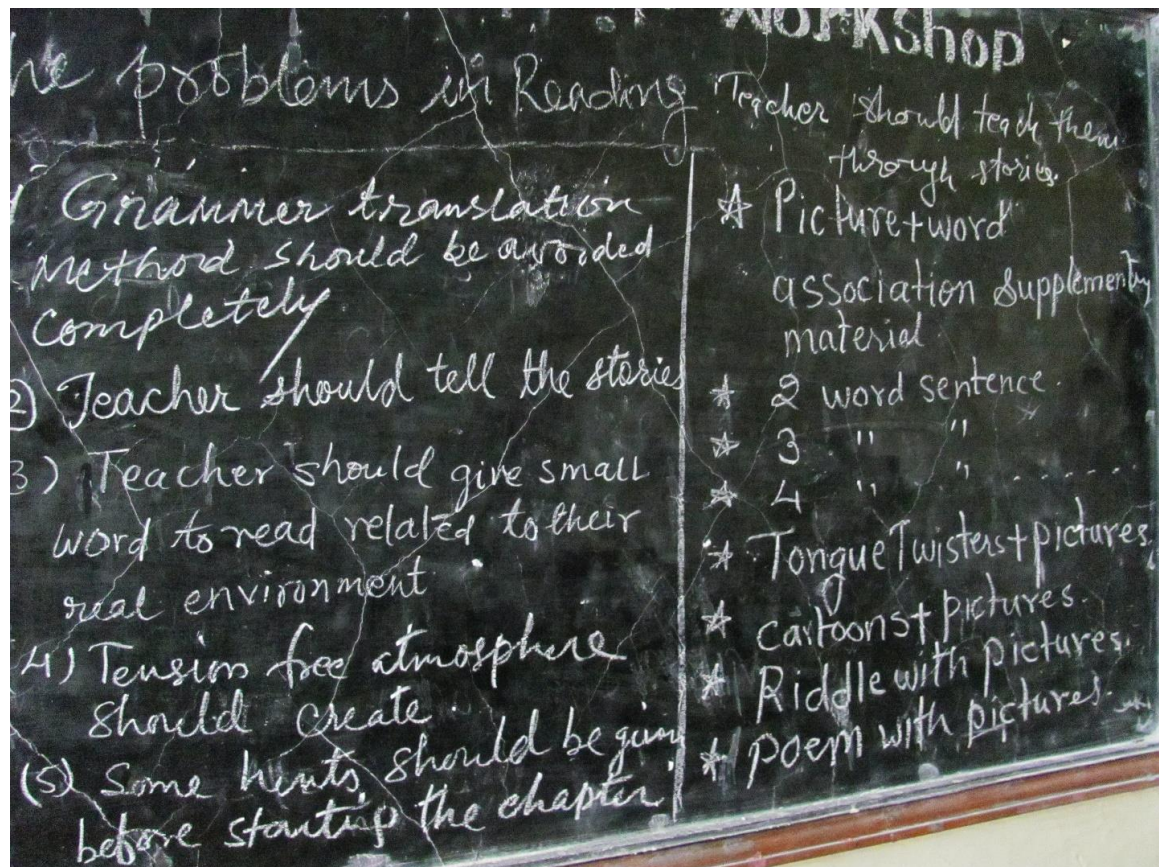 Workshop
he problems in Reading
1 Grammer translation
Method should be avoided
completely
2) Teacher should tell the stories
3) Teacher should give small
word to read related to their
real environment
4) Tension free atmosphere
should create.
(5) Some hints, should be given
before starting the chapter
Teacher should teach them
through stories.
☆ Picture+word
association Supplementry
material
☆ 2 word sentence.
☆ 3 " "
☆ 4 " " . . . . . .
☆ Tongue Twisters+pictures.
☆ cartoons+pictures.
☆ Riddle with pictures.
☆ poem with pictures.